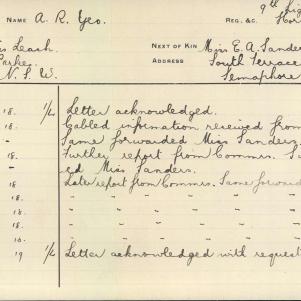 NAME A. R. Yeo. REG. &C. 9th Lig
Leach. NEXT OF KIN Miss E. A. Sander
Parke. ADDRESS South Terrace
N. S. W. Semaphore
18. 1/L Letter acknowledged.
18. Cabled information received from
- Same forwarded Miss Sanders.
18. Further report from Commrs.
ed Miss Sanders.
18 Later report from Commrs. Same forward
18. " " " " "
18. " " " " "
18. " " " " "
19 1/L Letter acknowledged with request